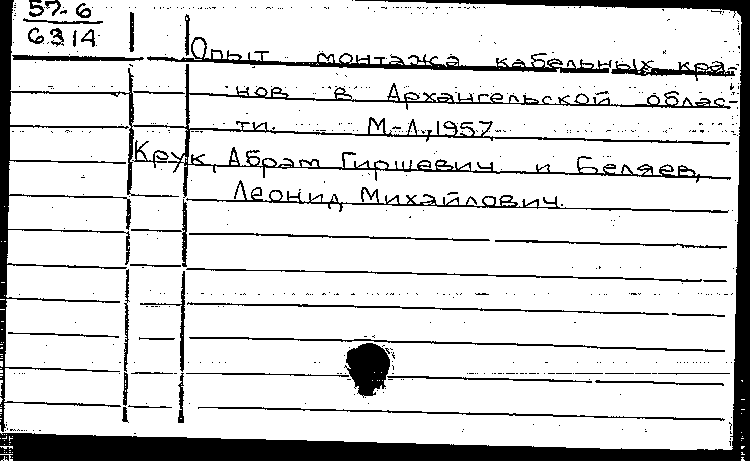 57-6
6314
Опыт монтажа кабельных кра-
нов в Архангельской облас-
ти. М.-Л., 1957
Крук, Абрам Гиршевич и Беляев,
Леонид Михайлович.